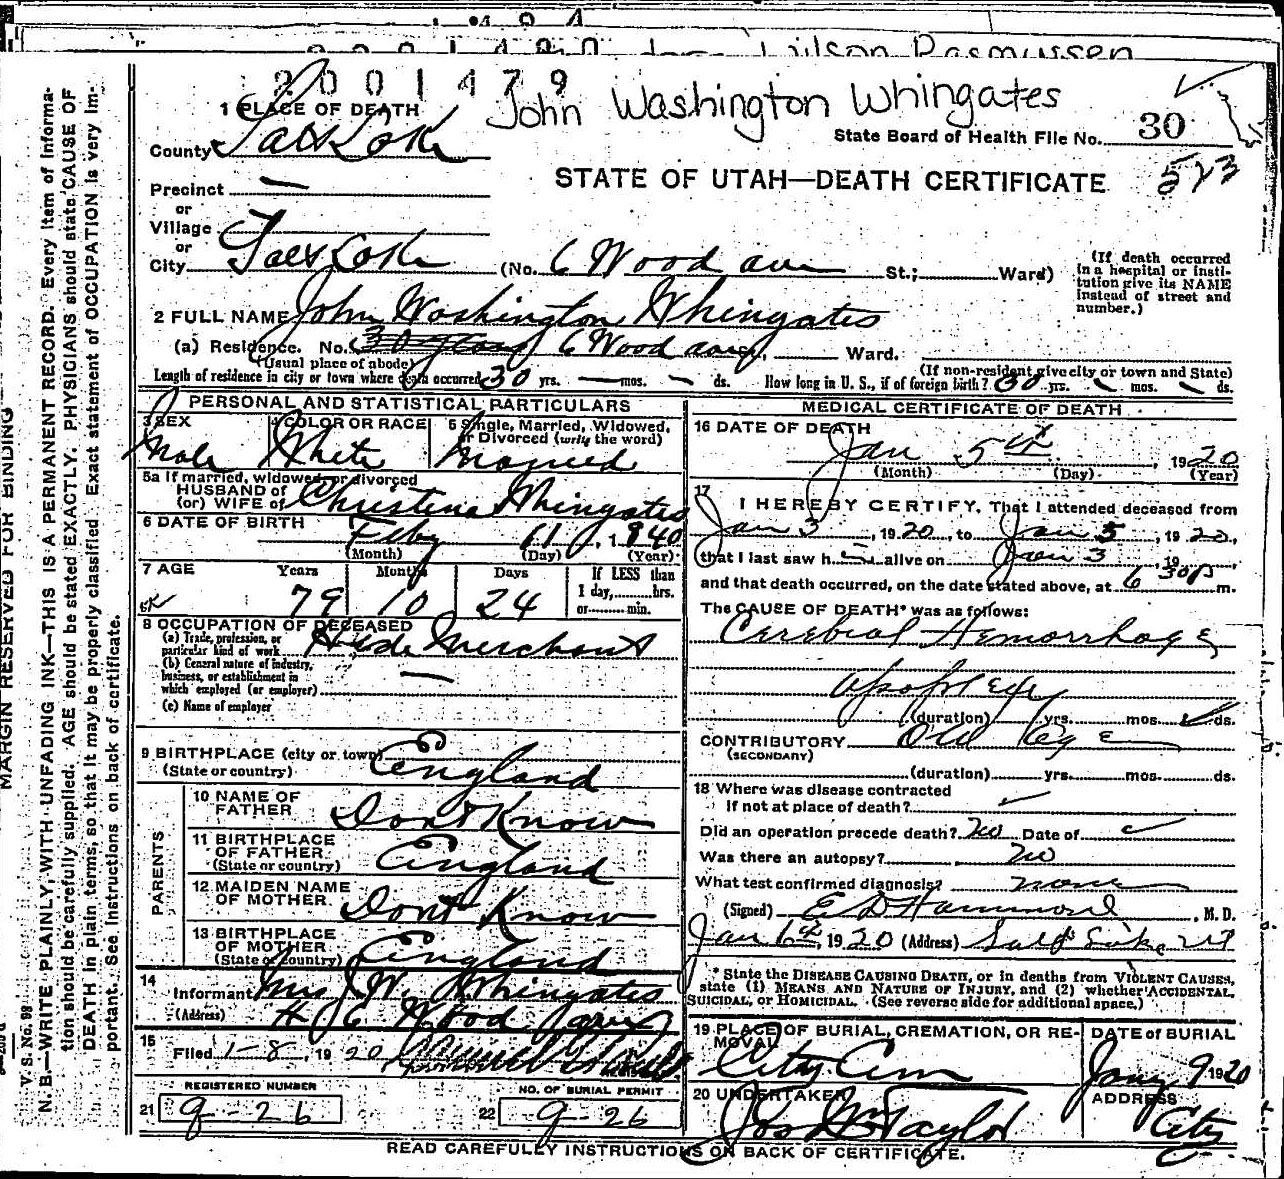 2001479
John Washington Whingates
1 PLACE OF DEATH
State Board of Health File No. 30
County Salt Lake
523
STATE OF UTAH—DEATH CERTIFICATE
Precinct —
or
Village
or
City Salt Lake (No. 6 Wood ave St.; Ward)
(If death occurred
in a hospital or insti-
tution give its NAME
instead of street and
number.)
2 FULL NAME John Washington Whingates
(a) Residence. No. 6 Wood Ward.
(Usual place of abode) (If non-resident give city or town and State)
Length of residence in city or town where death occurred 30 yrs. — mos. — ds. How long in U. S., if of foreign birth? 30 yrs. mos. ds.
PERSONAL AND STATISTICAL PARTICULARS
3 SEX 4 COLOR OR RACE 5 Single, Married, Widowed,
or Divorced (write the word)
Male White Married
5a If married, widowed or divorced
HUSBAND of
(or) WIFE of Christena Whingates
6 DATE OF BIRTH
Feby 11, 1840
(Month) (Day) (Year)
7 AGE Years Months Days If LESS than
1 day, hrs.
79 10 24 or min.
8 OCCUPATION OF DECEASED
(a) Trade, profession, or
particular kind of work Hide Merchant
(b) General nature of industry,
business, or establishment in
which employed (or employer) —
(c) Name of employer
9 BIRTHPLACE (city or town)
(State or country) England
PARENTS
10 NAME OF
FATHER Dont Know
11 BIRTHPLACE
OF FATHER
(State or country) England
12 MAIDEN NAME
OF MOTHER Dont Know
13 BIRTHPLACE
OF MOTHER
(State or country) England
14
Informant Mrs J. W. Whingates
(Address) # 6 Wood
15
Filed 1-8, 1920
REGISTERED NUMBER NO. OF BURIAL PERMIT
21 9-26 22 9-26
MEDICAL CERTIFICATE OF DEATH
16 DATE OF DEATH
Jan 5th, 1920
(Month) (Day) (Year)
17
I HEREBY CERTIFY, That I attended deceased from
Jan 3, 1920, to Jan 5, 1920,
that I last saw h alive on Jan 3, 19
and that death occurred, on the date stated above, at 6 30 P m.
The CAUSE OF DEATH* was as follows:
Cerebral Hemorrhage
Apoplexy
(duration) yrs. mos. ds.
CONTRIBUTORY Old Age
(SECONDARY)
(duration) yrs. mos. ds.
18 Where was disease contracted
If not at place of death?
Did an operation precede death? No Date of
Was there an autopsy? No
What test confirmed diagnosis? none
(Signed) E D Hammond, M. D.
Jan 6th, 1920 (Address) Salt Lake, UT
* State the DISEASE CAUSING DEATH, or in deaths from VIOLENT CAUSES,
state (1) MEANS AND NATURE OF INJURY, and (2) whether ACCIDENTAL,
SUICIDAL, or HOMICIDAL. (See reverse side for additional space.)
19 PLACE OF BURIAL, CREMATION, OR RE-
MOVAL DATE of BURIAL
City Cem Jany 9 1920
20 UNDERTAKER ADDRESS
Jos Wm Taylor City
READ CAREFULLY INSTRUCTIONS ON BACK OF CERTIFICATE.
MARGIN RESERVED FOR BINDING
V. S. No. 98
N. B.—WRITE PLAINLY, WITH UNFADING INK—THIS IS A PERMANENT RECORD. Every item of informa-
tion should be carefully supplied. AGE should be stated EXACTLY. PHYSICIANS should state CAUSE OF
DEATH in plain terms, so that it may be properly classified. Exact statement of OCCUPATION is very im-
portant. See instructions on back of certificate.